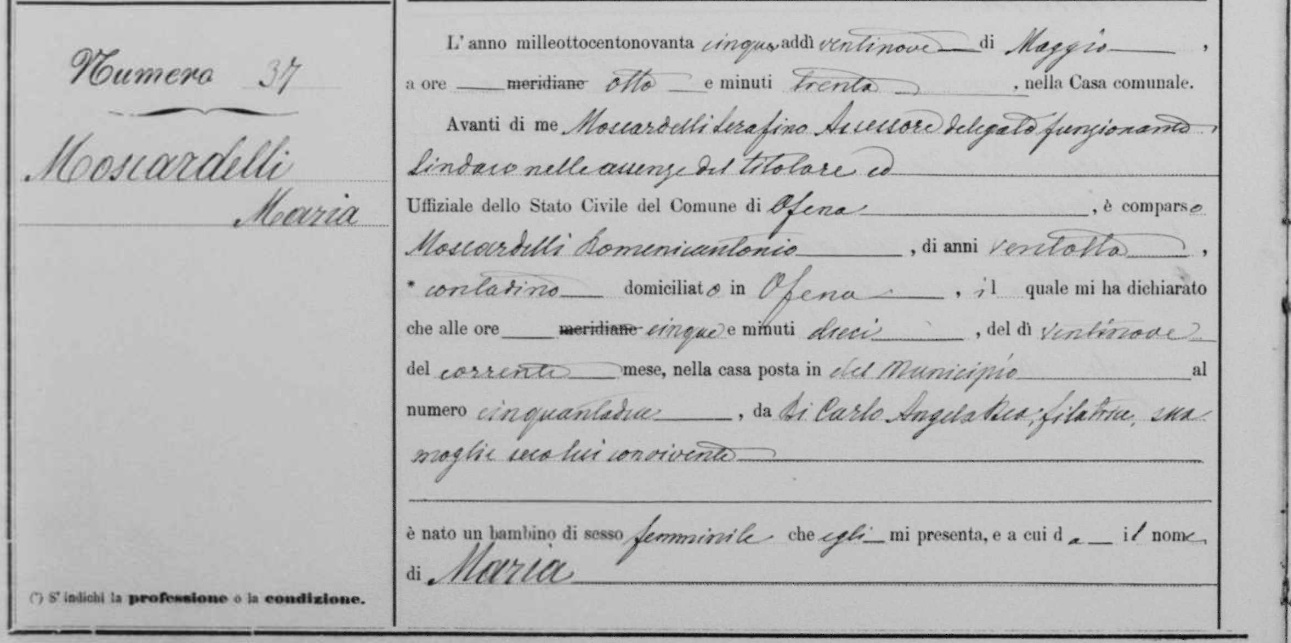 Numero 37
Moscardelli
Maria
(*) S'indichi la professione o la condizione.
L'anno milleottocentonovanta cinque addì ventinove di Maggio,
a ore meridiane otto e minuti trenta, nella Casa comunale.
Avanti di me Moscardelli Serafino Assessore delegato funzionante
Sindaco nelle assenze del titolare ed
Uffiziale dello Stato Civile del Comune di Ofena, è comparso
Moscardelli Domenicantonio, di anni ventotto,
* contadino domiciliato in Ofena, il quale mi ha dichiarato
che alle ore meridiane cinque e minuti dieci, del dì ventinove
del corrente mese, nella casa posta in del Municipio al
numero cinquantadue, da Di Carlo Angela, filatrice, sua
moglie seco lui convivente
è nato un bambino di sesso femminile che egli mi presenta, e a cui da il nome
di Maria